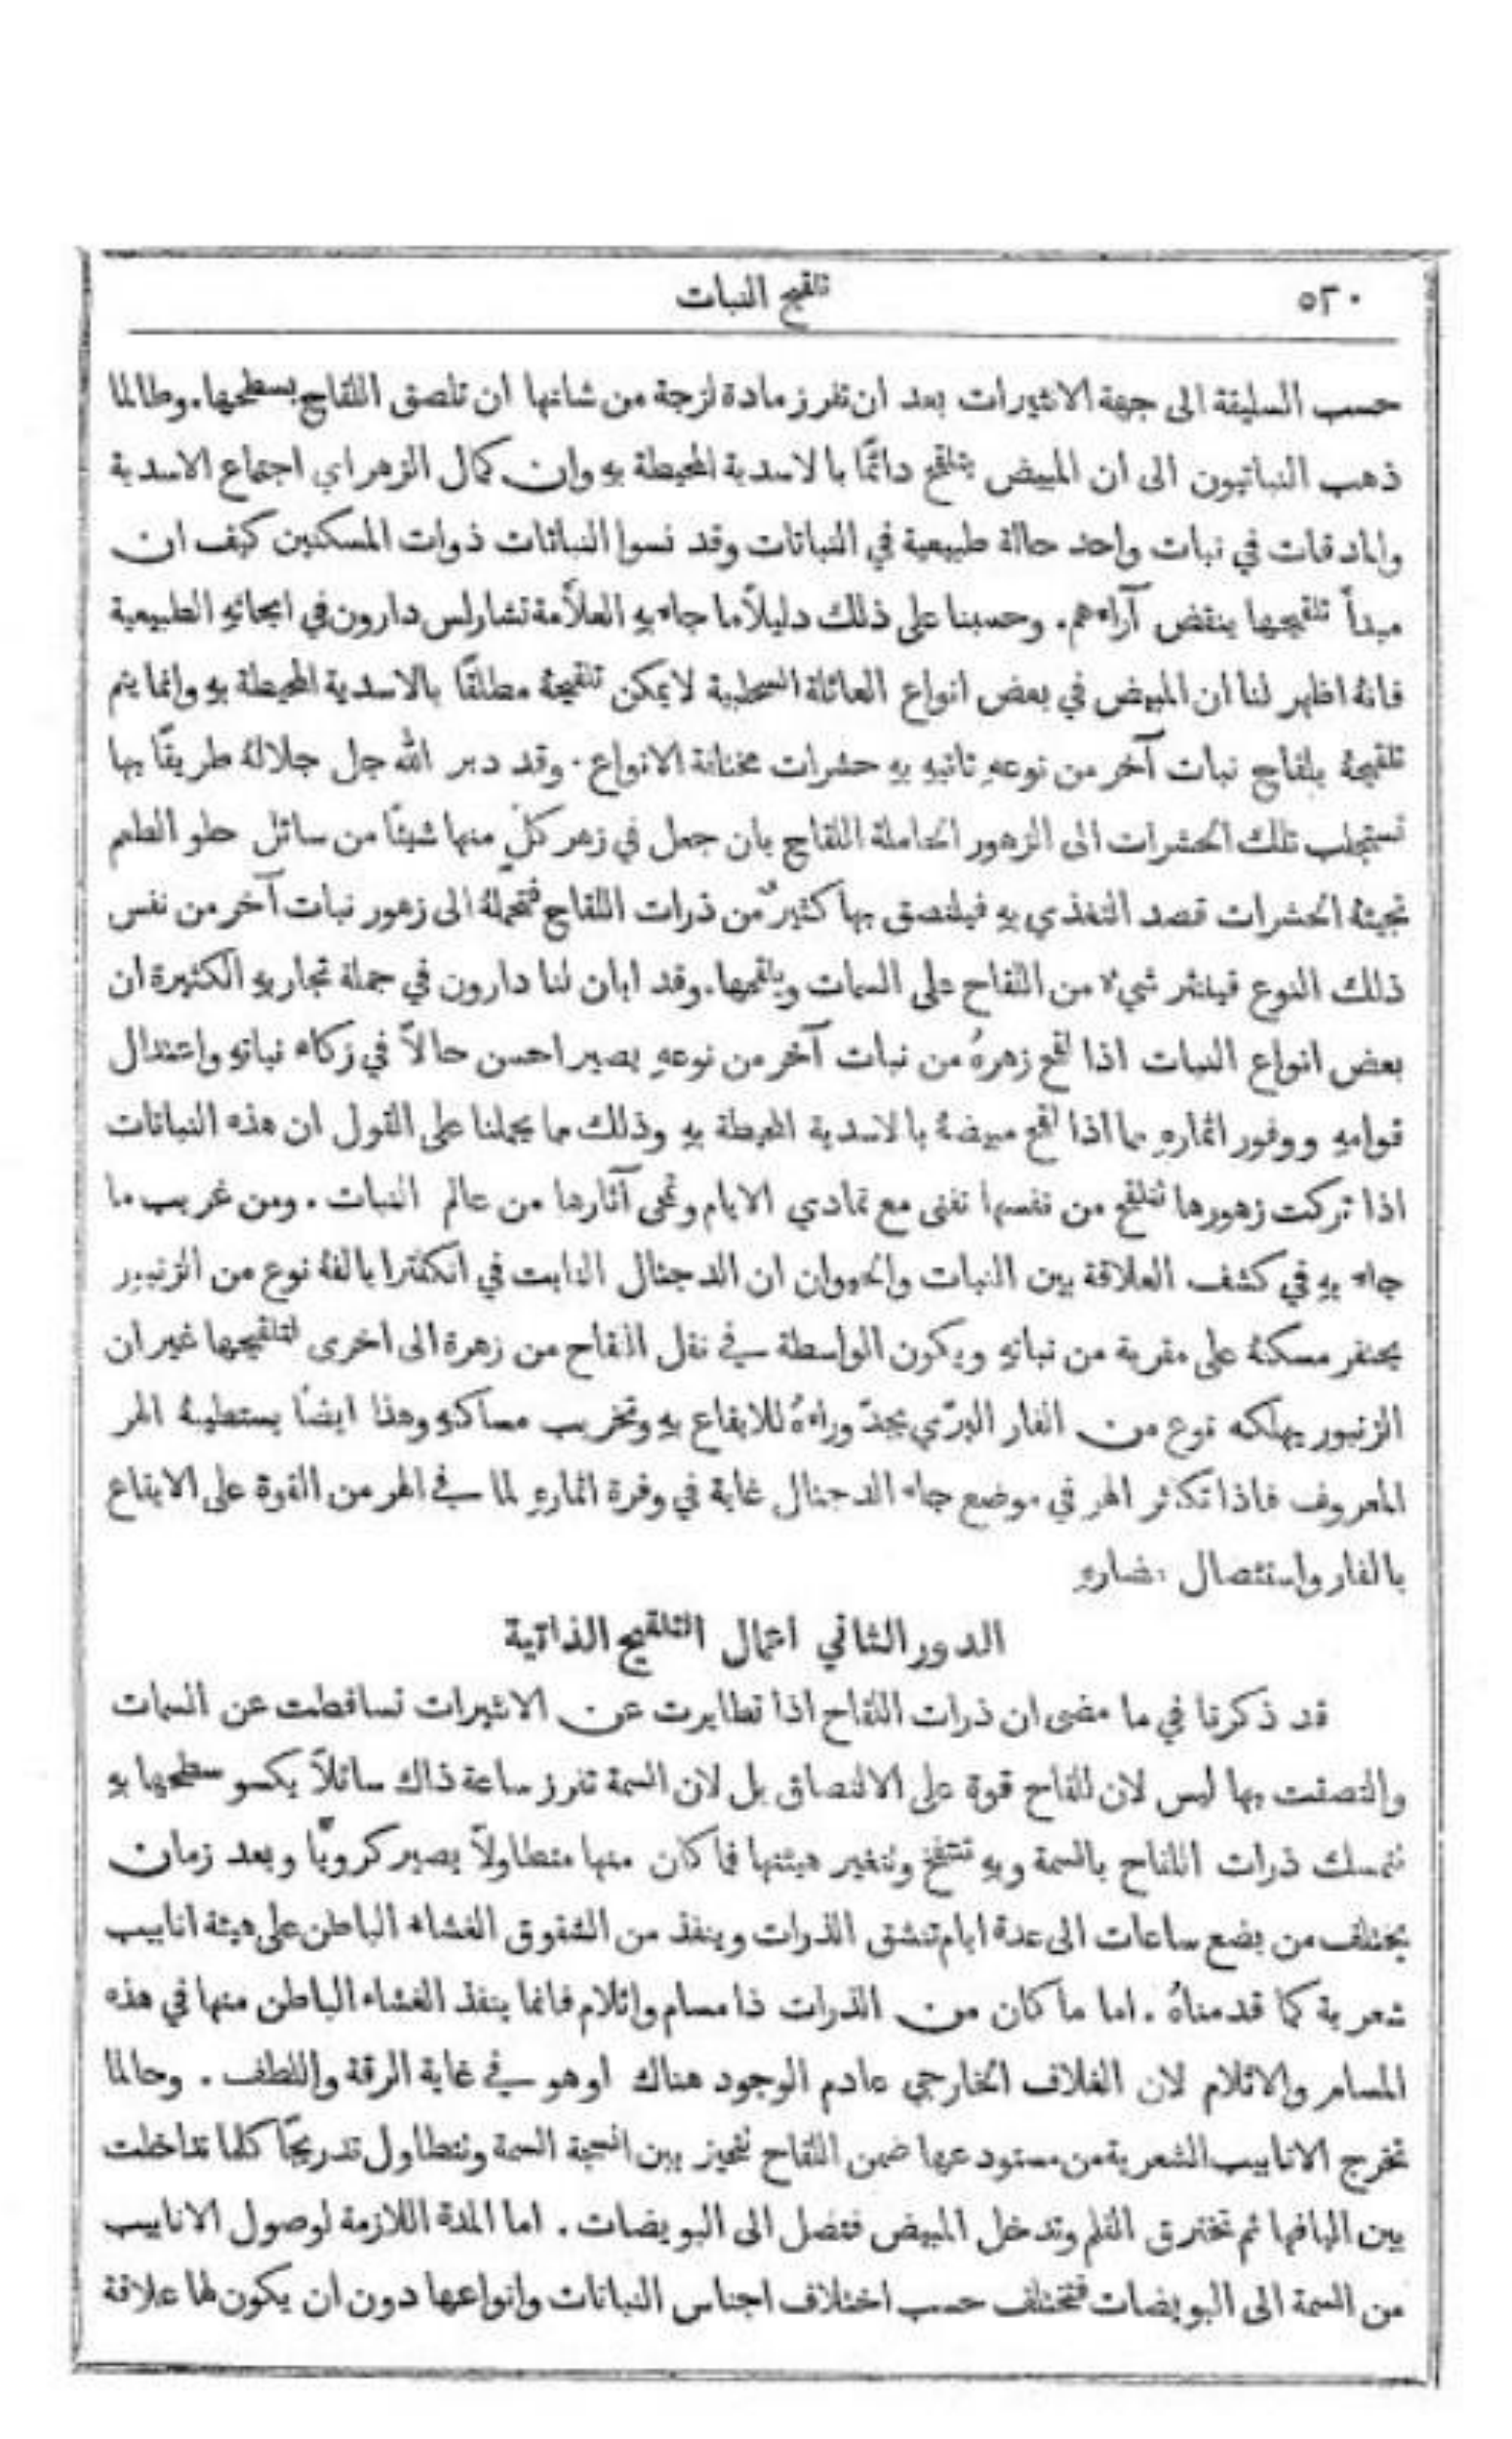 ٥٢٠
تلقيح النبات
حسب السليقة الى جهة الانثيرات بعد ان تفرز مادة لزجة من شانها ان تلصق اللقاح بسطحها. وطالما
ذهب النباتيون الى ان المبيض يتلقح دائمًا بالاسدية المحيطة به وان كمال الزهر اي اجتماع الاسدية
والمدقات في نبات واحد حالة طبيعية في النباتات وقد نسوا النباتات ذوات المسكنين كيف ان
مبدأ تلقيحها ينقض آراءهم. وحسبنا على ذلك دليلاً ما جاء به العلاَّمة تشارلس دارون في ابحاثهِ الطبيعية
فانهُ اظهر لنا ان المبيض في بعض انواع العائلة السحلبية لا يمكن تلقيحهُ مطلقًا بالاسدية المحيطة به وانما يتم
تلقيحهُ بلقاح نبات آخر من نوعهِ تاتيهِ بهِ حشرات مختلفة الانواع. وقد دبر الله جل جلالهُ طريقًا بها
تستجلب تلك الحشرات الى الزهور الحاملة اللقاح بان جعل في زهر كلٍ منها شيئًا من سائل حلو الطعم
تجيئهُ الحشرات قصد التغذي بهِ فيلتصق بها كثيرٌ من ذرات اللقاح فتحملهُ الى زهور نبات آخر من نفس
ذلك النوع فينثر شيءٌ من اللقاح على السمات ويلقحها. وقد ابان لنا دارون في جملة تجاربهِ الكثيرة ان
بعض انواع النبات اذا لقح زهرهُ من نبات آخر من نوعهِ يصير احسن حالاً في زكاء نباتهِ واعتدال
قوامهِ ووفور اثمارهِ مما اذا لقح مبيضهُ بالاسدية المحيطة بهِ وذلك مما يحملنا على القول ان هذه النباتات
اذا تركت زهورها تتلقح من نفسها تفنى مع تمادي الايام وتمحى آثارها من عالم النبات. ومن غريب ما
جاء بهِ في كشف العلاقة بين النبات والحيوان ان الدجتال النابت في انكلترا يالفهُ نوع من الزنبير
يحتفر مسكنهُ على مقربة من نباتهِ ويكون الواسطة في نقل اللقاح من زهرة الى اخرى لتلقيحها غير ان
الزنبور يهلكه نوع من الفار البرّي يجدّ وراءهُ للايقاع بهِ وتخريب مساكنهِ وهذا ايضًا يستطيبهُ الهر
المعروف فاذا تكاثر الهر في موضع جاء الدجتال غاية في وفرة اثمارهِ لما في الهر من القوة على الايقاع
بالفار واستئصال مضارهِ
الدور الثاني اعمال التلقيح الذاتية
قد ذكرنا في ما مضى ان ذرات اللقاح اذا تطايرت عن الانثيرات تساقطت عن السمات
والتصقت بها ليس لان للقاح قوة على الالتصاق بل لان السمة تفرز ساعة ذاك سائلاً يكسو سطحها بهِ
تتمسك ذرات اللقاح بالسمة وبهِ تنتفخ وتتغير هيئتها فما كان منها متطاولاً يصير كرويًّا وبعد زمان
يختلف من بضع ساعات الى عدة ايام تنشق الذرات وينفذ من الشقوق الغشاء الباطن على هيئة انابيب
شعرية كما قدمناهُ. اما ما كان من الذرات ذا مسام واثلام فانما ينفذ الغشاء الباطن منها في هذه
المسام والاثلام لان الغلاف الخارجي عادم الوجود هناك او هو في غاية الرقة واللطف. وحالما
تخرج الانابيب الشعرية من مستودعها ضمن اللقاح تتحيز بين انسجة السمة وتتطاول تدريجًا كلما تداخلت
بين اليافها ثم تخترق القلم وتدخل المبيض فتصل الى البويضات. اما المدة اللازمة لوصول الانابيب
من السمة الى البويضات فتختلف حسب اختلاف اجناس النباتات وانواعها دون ان يكون لها علاقة